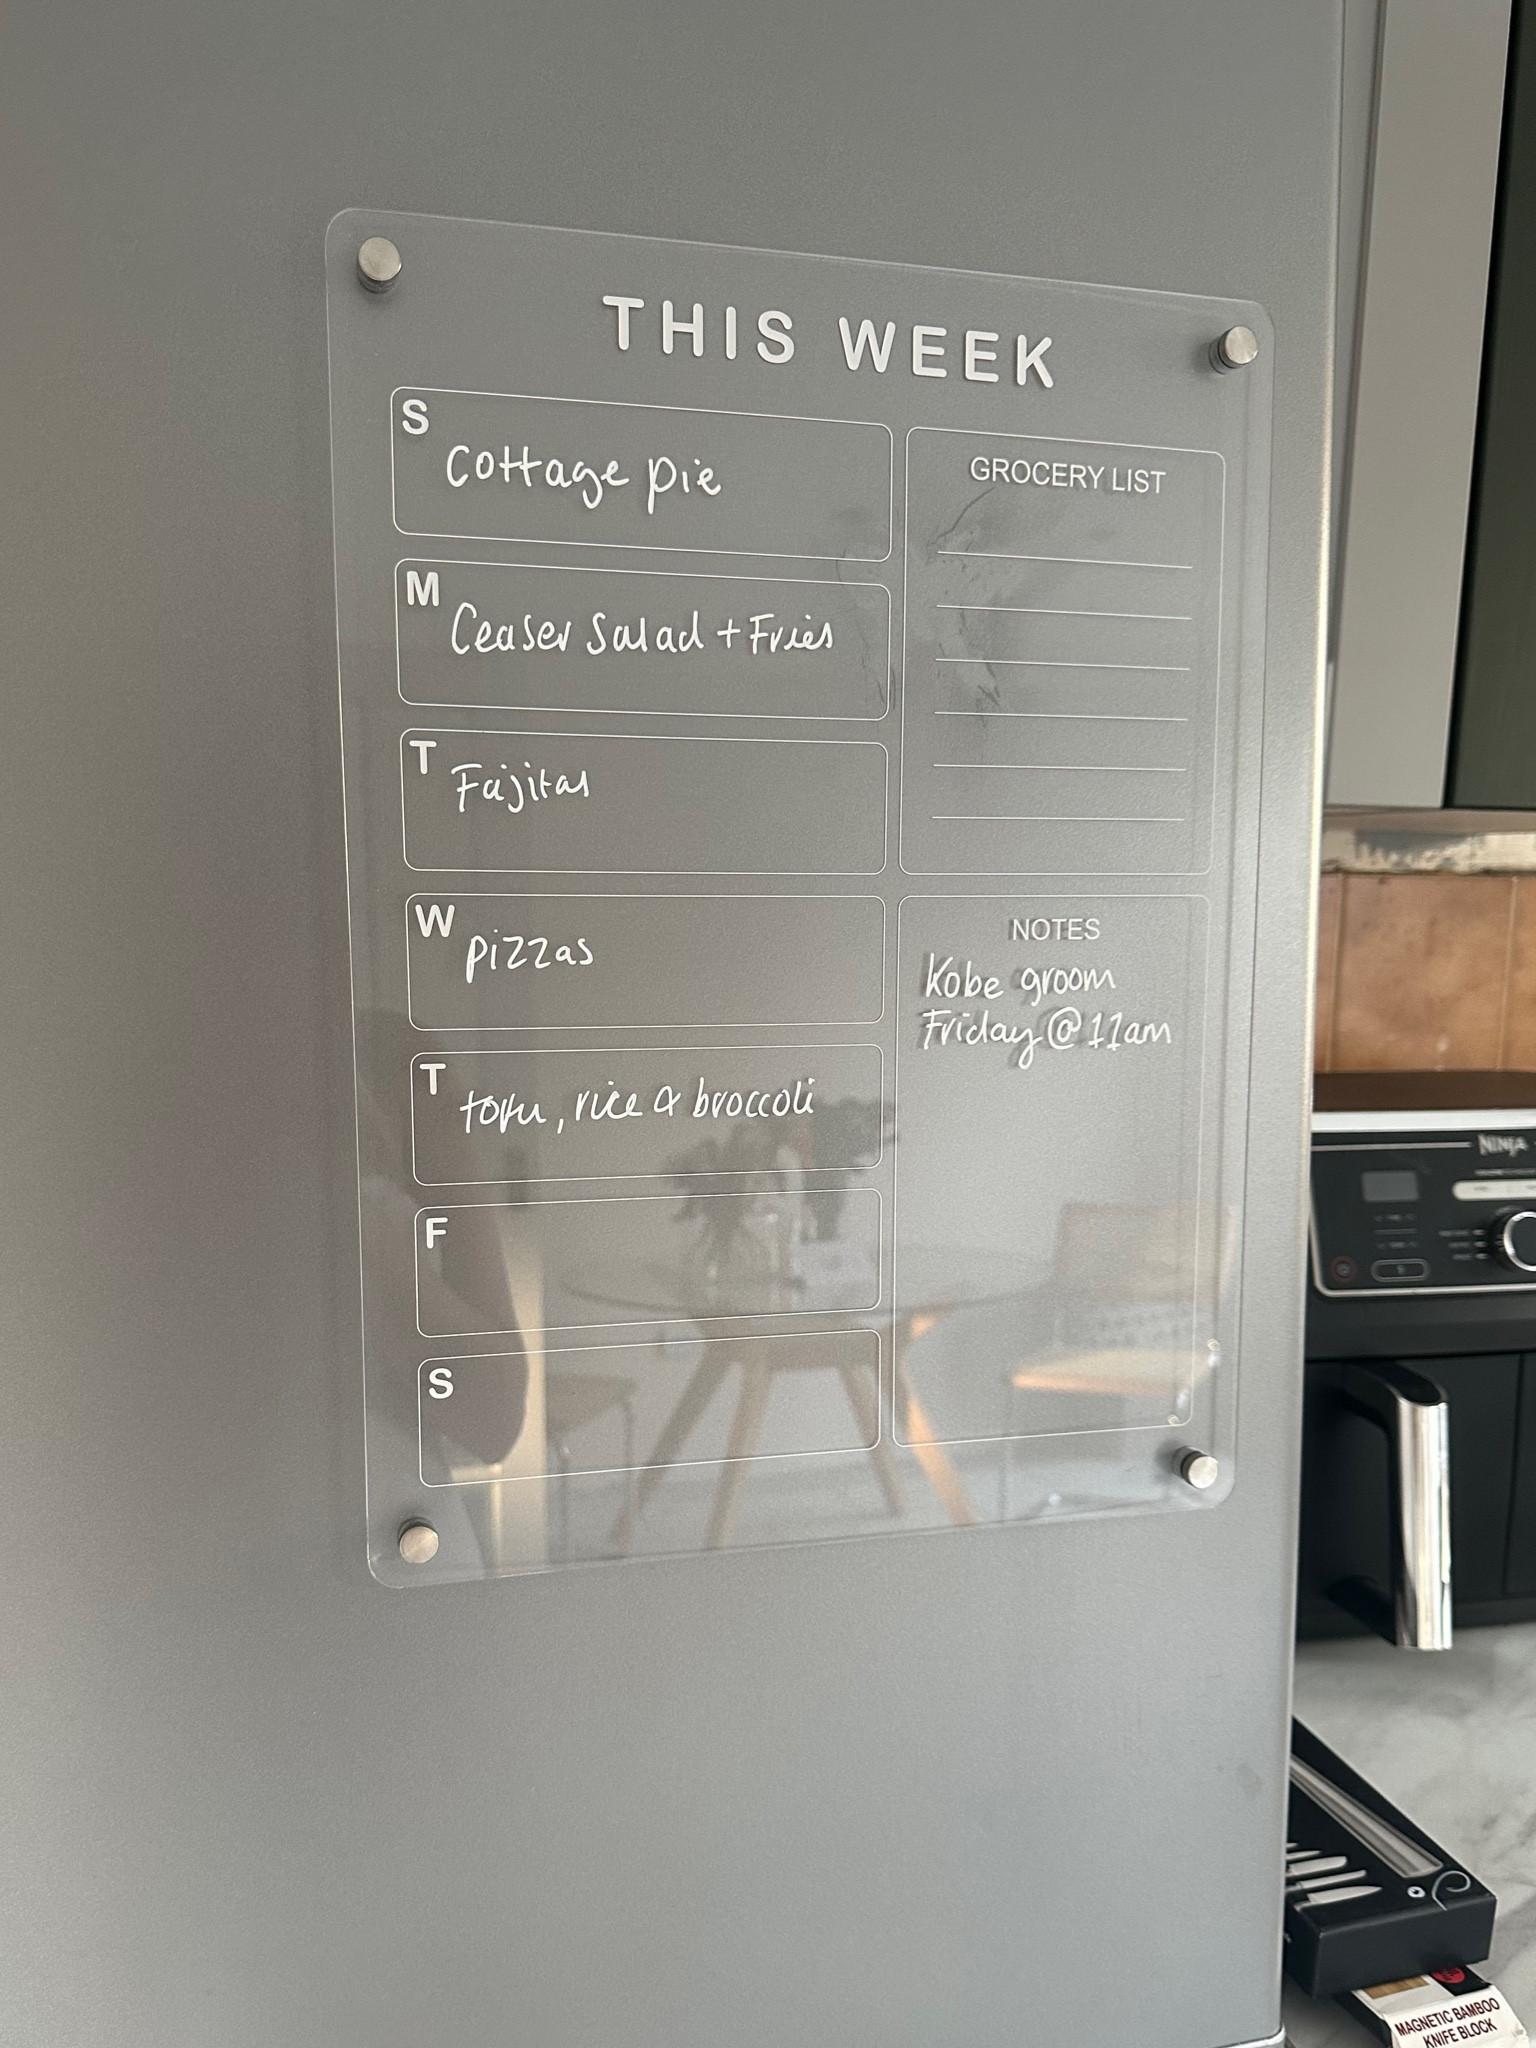 THIS WEEK
S
Cottage pie
M
Ceaser Salad + Fries
T
Fajitas
W
pizzas
T
tofu, rice & broccoli
F
S
GROCERY LIST
NOTES
Kobe groom
Friday @ 11am
NINJA
MAGNETIC BAMBOO
KNIFE BLOCK